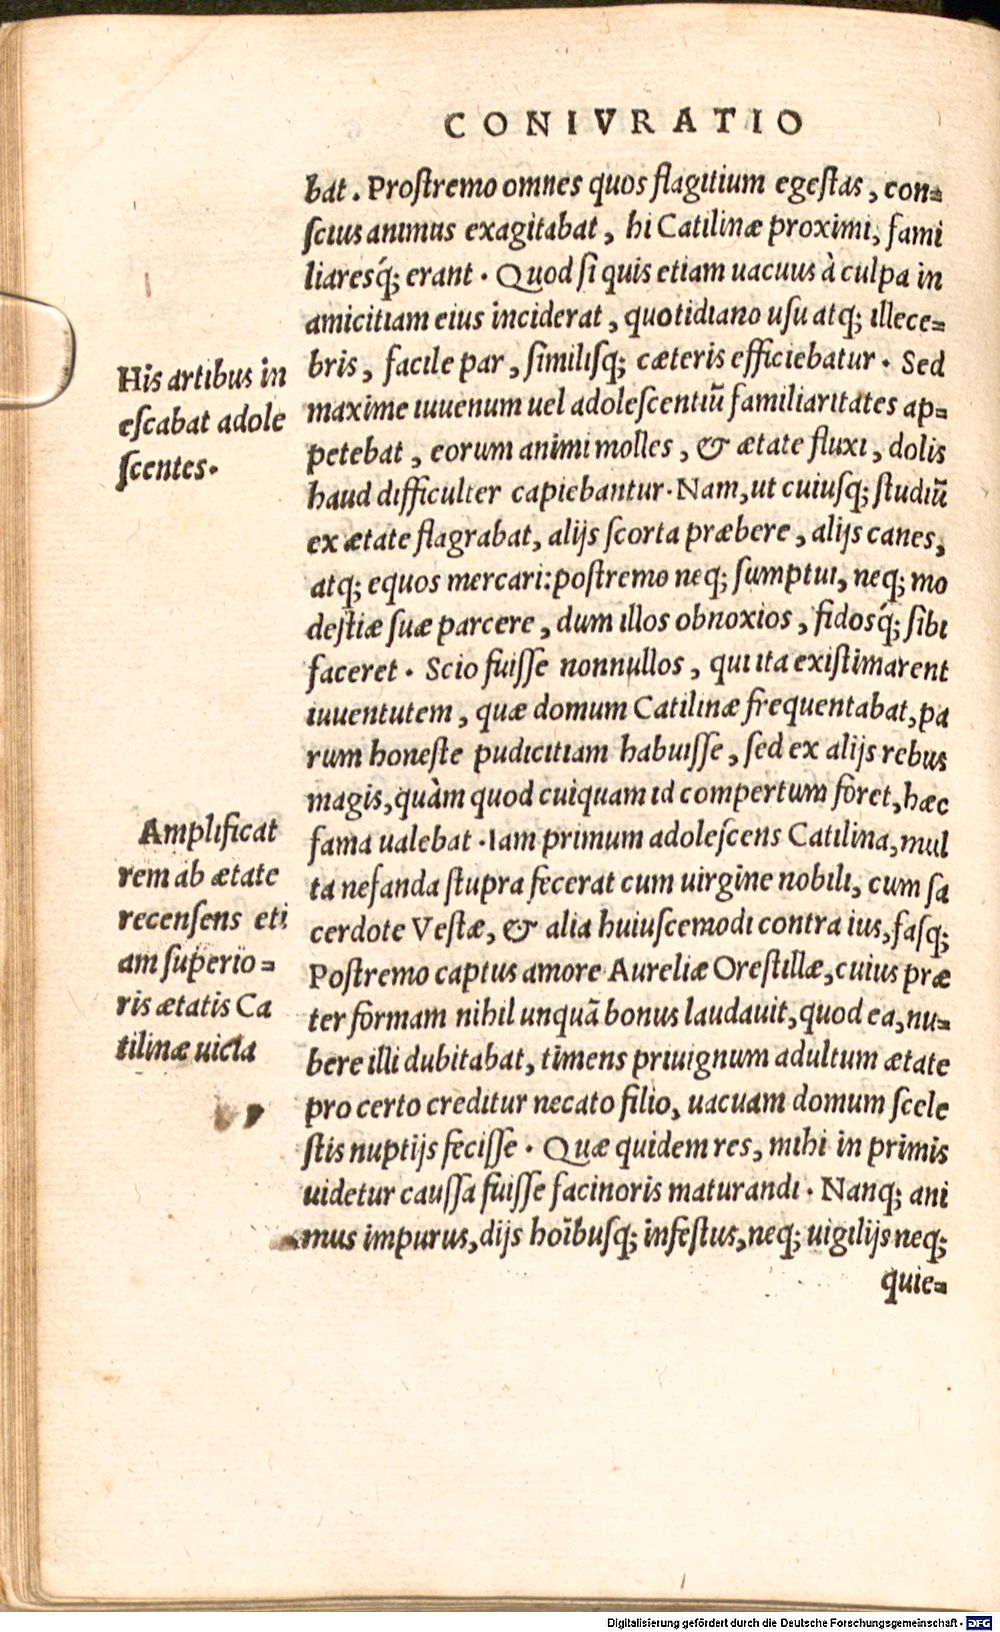 CONIVRATIO
bat. Proſtremo omnes quos flagitium egeſtas, con-
ſcius animus exagitabat, hi Catilinæ proximi, fami
liaresq́; erant. Quod ſi quis etiam uacuus à culpa in
amicitiam eius inciderat, quotidiano uſu atq; illece-
bris, facile par, ſimiliſq; cæteris efficiebatur. Sed
maxime iuuenum uel adoleſcentiũ familiaritates ap-
petebat, eorum animi molles, & ætate fluxi, dolis
haud difficulter capiebantur. Nam, ut cuiuſq; ſtudiũ
ex ætate flagrabat, alijs ſcorta præbere, alijs canes,
atq; equos mercari: poſtremo neq; ſumptui, neq; mo
deſtiæ ſuæ parcere, dum illos obnoxios, fidosq́; ſibi
faceret. Scio fuiſſe nonnullos, qui ita exiſtimarent
iuuentutem, quæ domum Catilinæ frequentabat, pa
rum honeſte pudicitiam habuiſſe, ſed ex alijs rebus
magis, quàm quod cuiquam id compertum foret, hæc
fama ualebat. Iam primum adoleſcens Catilina, mul
ta nefanda ſtupra fecerat cum uirgine nobili, cum ſa
cerdote Veſtæ, & alia huiuſcemodi contra ius, faſq;
Poſtremo captus amore Aureliæ Oreſtillæ, cuius præ
ter formam nihil unquã bonus laudauit, quod ea, nu-
bere illi dubitabat, timens priuignum adultum ætate
pro certo creditur necato filio, uacuam domum ſcele
ſtis nuptijs feciſſe. Quæ quidem res, mihi in primis
uidetur cauſſa fuiſſe facinoris maturandi. Nanq; ani
mus impurus, dijs hoĩbuſq; infeſtus, neq; uigilijs neq;
quie-
His artibus in
eſcabat adole
ſcentes.
Amplificat
rem ab ætate
recenſens eti
am ſuperio-
ris ætatis Ca
tilinæ uicia
Digitalisierung gefördert durch die Deutsche Forschungsgemeinschaft - DFG